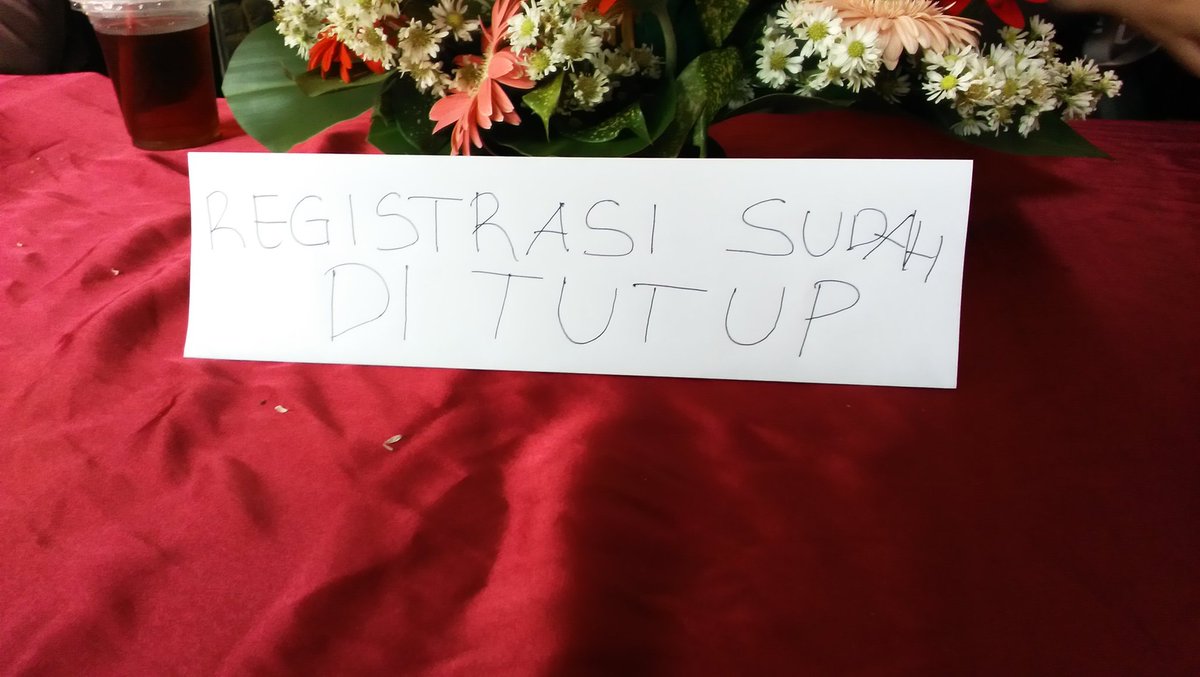 REGISTRASI SUDAH
DI TUTUP